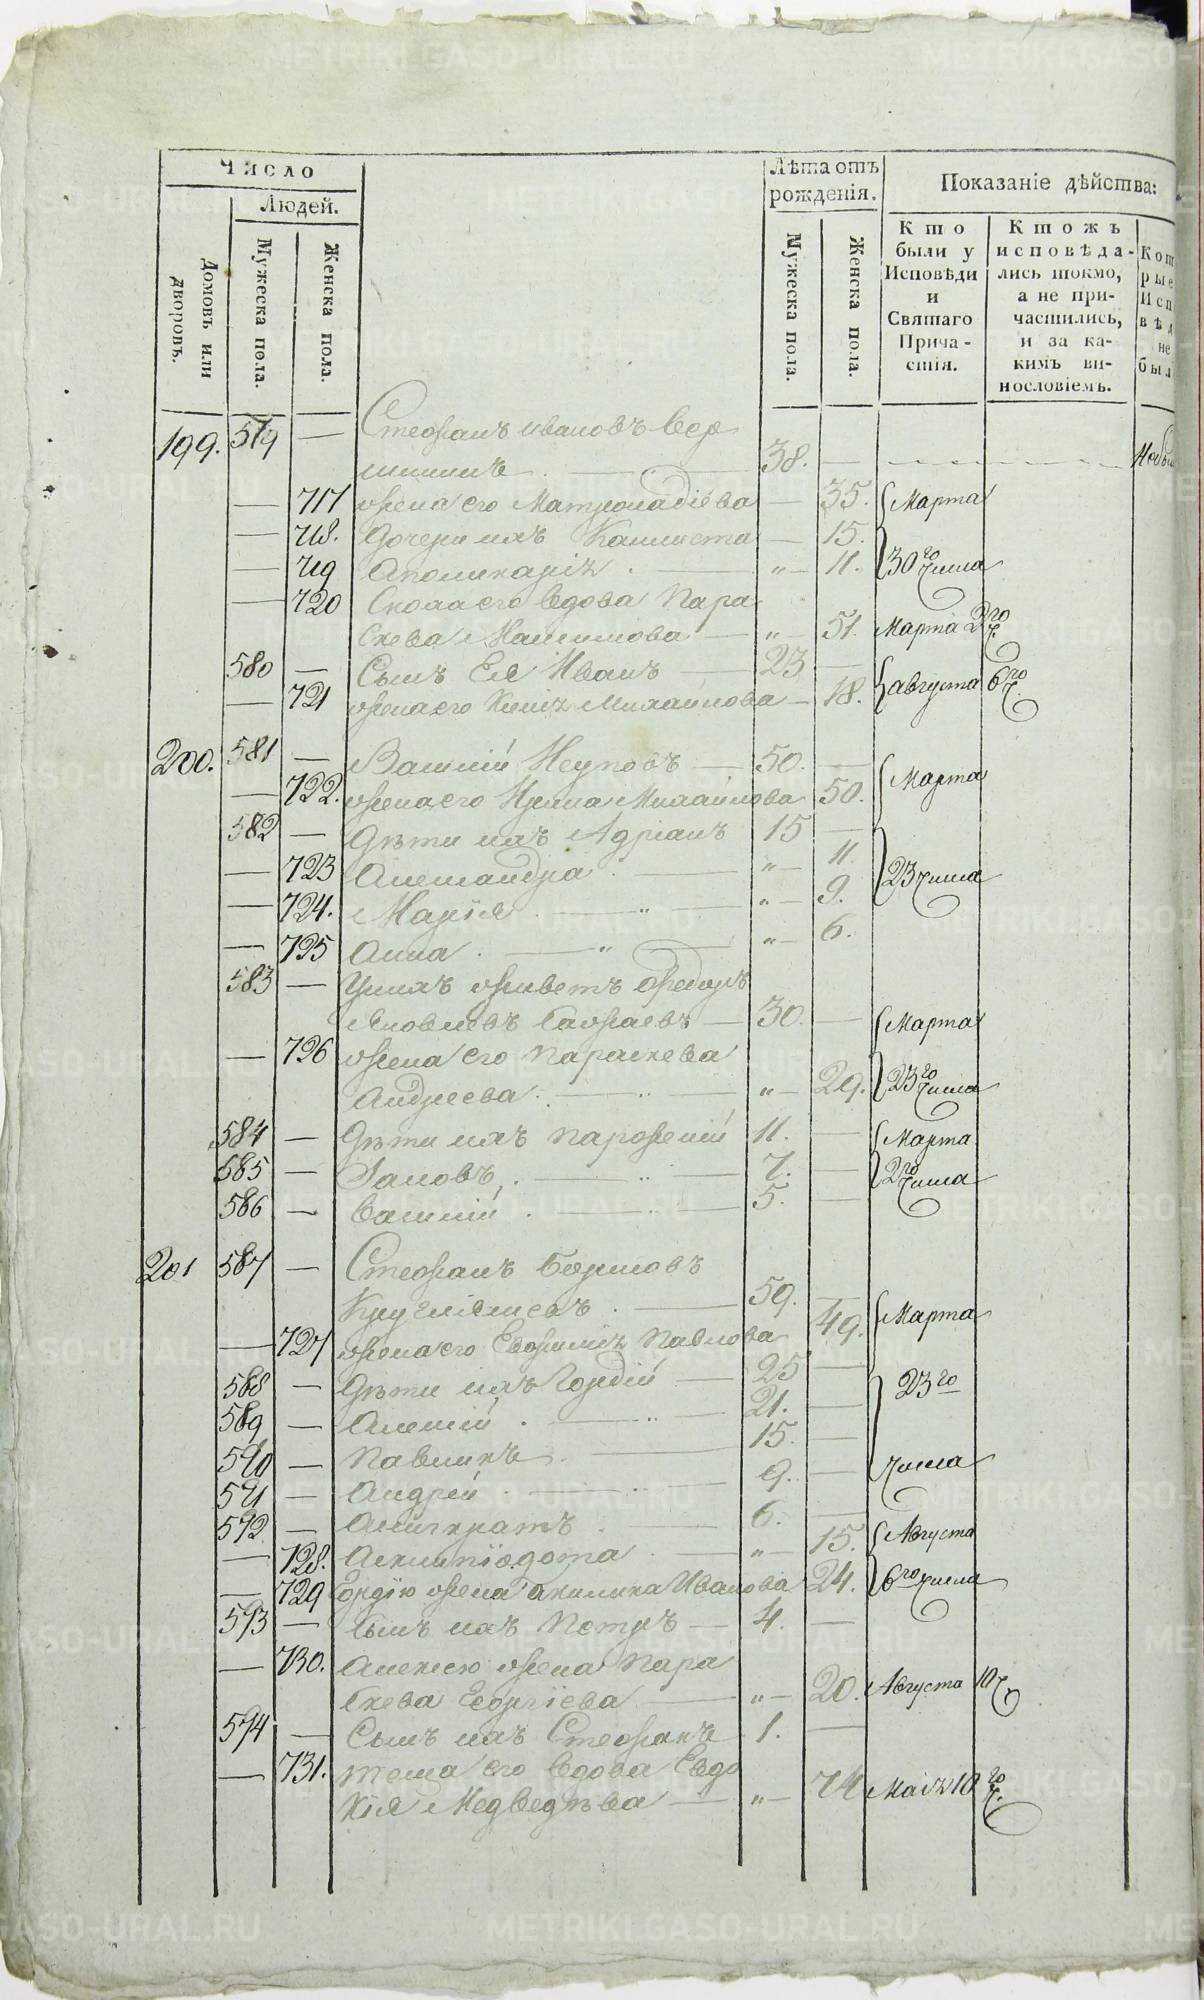 Число
Людей.
Домовъ или дворовъ.
Мужеска пола.
Женска пола.
Лѣта отъ рожденія.
Мужеска пола.
Женска пола.
Показаніе дѣйства:
Кто были у Исповѣди и Святаго Причастія.
Ктожъ исповѣдались токмо, а не причастились, и за какимъ винословіемъ.
199. 579 — Стефанъ Ивановъ Вер
шининъ 38. —
— 717 жена его Матрона — 35. Марта
— 718. Дочери ихъ Каллиста — 15.
— 719 Аполинарія „ — 11. 30го числа
— 720 Сноха его вдова Пара
скева Максимова — „ — 51. Марта
580 — Сынъ Ея Иванъ — 23 —
— 721 жена его Ксенія Михайлова — 18. августа 6го ч.
200. 581 — Василій Неуповъ — 50. — Марта
— 722. жена его Ирина Михайлова 50.
582 — Дѣти ихъ Адріанъ 15 —
— 723 Александра „ — 11. 23 числа
— 724. Марія „ — 9.
— 725 Анна „ — 6.
583 — У нихъ живетъ Федоръ
Яковлевъ — 30. — Марта
— 726 жена его Параскева
Андреева „ — 29. 23го числа
584 — Дѣти ихъ Парфеній 11. — Марта
585 — Іаковъ 7. — 2го числа
586 — Василій 5. —
201 587 — Стефанъ Борисовъ
59. — Марта
— 727 жена его Евфимія Павлова 49.
588 — Дѣти ихъ Гордій — 25 — 23го
589 — Алексій 21. —
590 — Павлинъ 15. — числа
591 — Андрей 9. —
592 — 6. — Августа
— 728. „ — 15.
— 729 Гордію жена Акилина Иванова 24. 6го числа
593 — Сынъ ихъ Петръ — 4. —
— 730. Алексею жена Пара
скева Георгіева „ — 20. Августа 10 ч.
594 — Сынъ ихъ Стефанъ 1. —
— 731. теща его вдова Евдо
кія Медведѣва — „ — 74 Маія 10го ч.